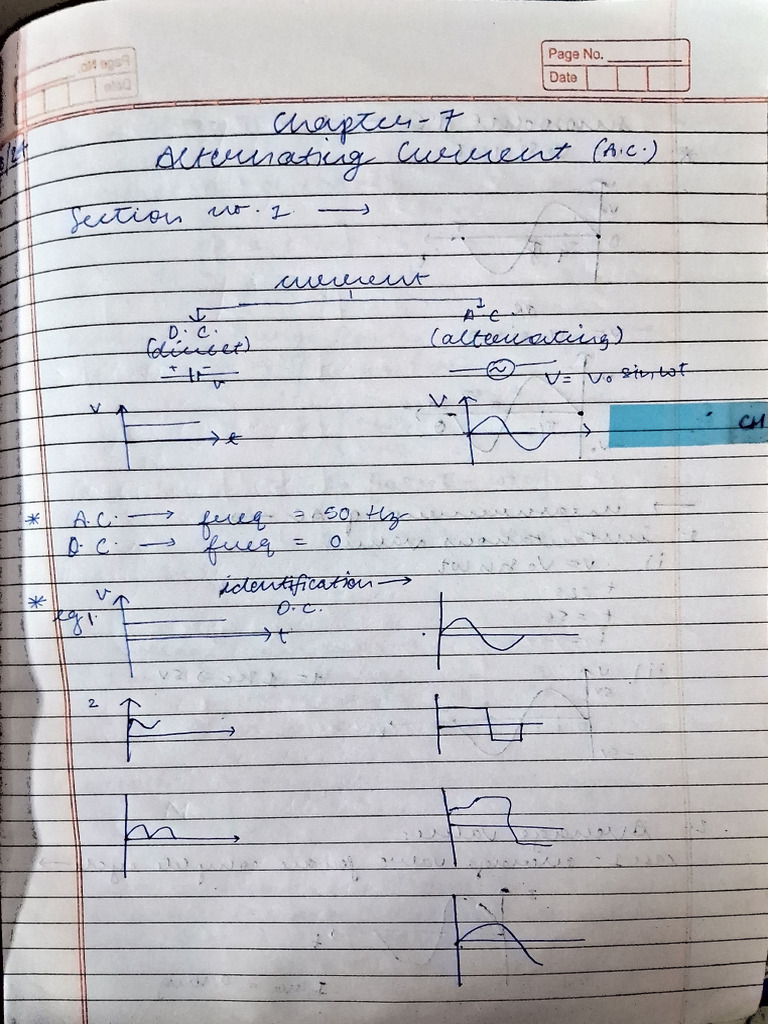 Page No.
Date
Chapter-7
Alternating Current (A.C.)
Section no. 1 →
current
D.C. A.C.
(direct) (alternating)
+ -
V
V = V₀ sin ωt
V V
t
CH
* A.C. → freq = 50 Hz
D.C. → freq = 0
* identification →
eg 1. V D.C.
t
2